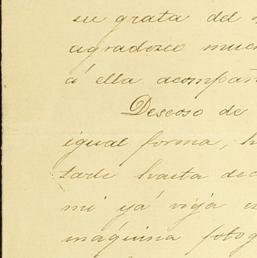 su grata del
agradozco muc
á ella acompañ
Deseoso de
igual forma, h
tarle hasta de
mi ya vieja
maquina fotog